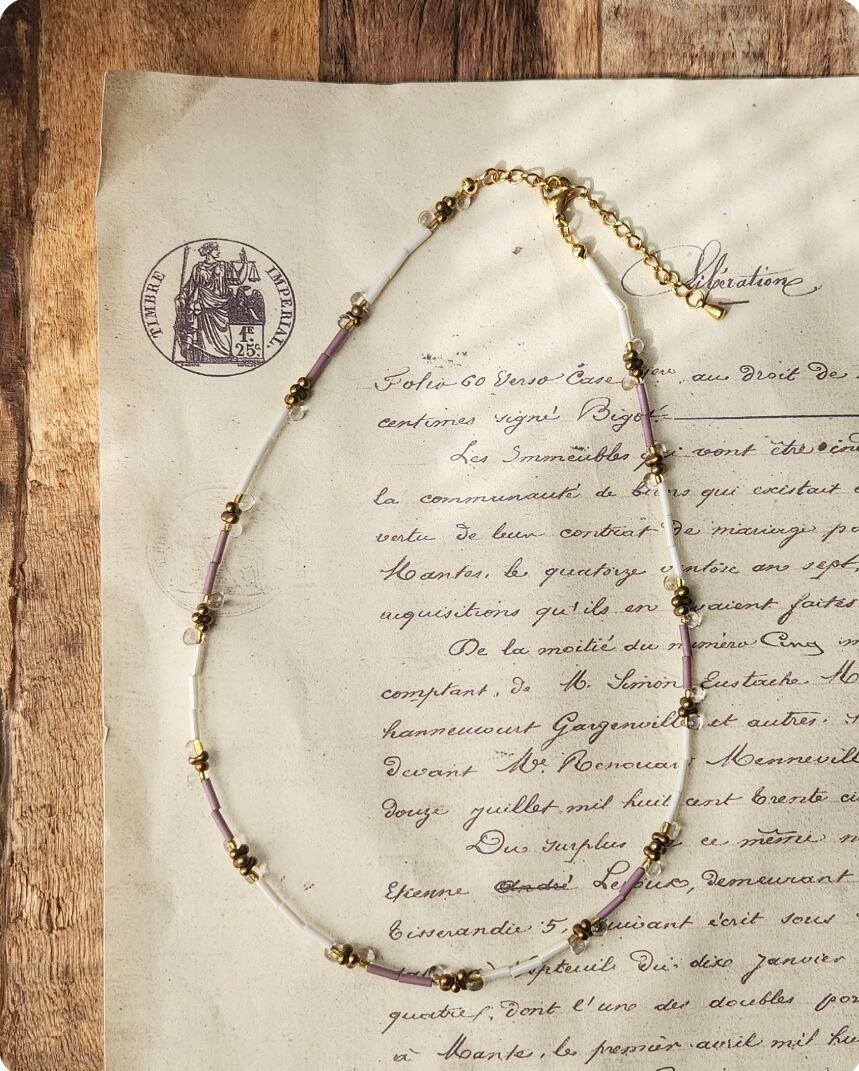 TIMBRE IMPERIAL.
1F.
25c.
Libération
Folio 60 Verso Case au droit de
centimes signé Bigot
Les Immeubles qui vont être
la communauté de biens qui existait
vertu de leur contrat de mariage
Mantes, le quatorze ventose an sept,
acquisitions qu'ils en avaient faites
De la moitié du numéro Cinq
comptant, de M. Simon Eustache
hanneucourt Gargenville et autres.
devant Me. Renouard Menneville
douze juillet mil huit cent trente
Du surplus ce même
Etienne André Leroux, demeurant
Tisserandie 5, suivant écrit sous
Septeuil Du dix Janvier
quatre, dont l'une des doubles
à Mante, le premier avril mil